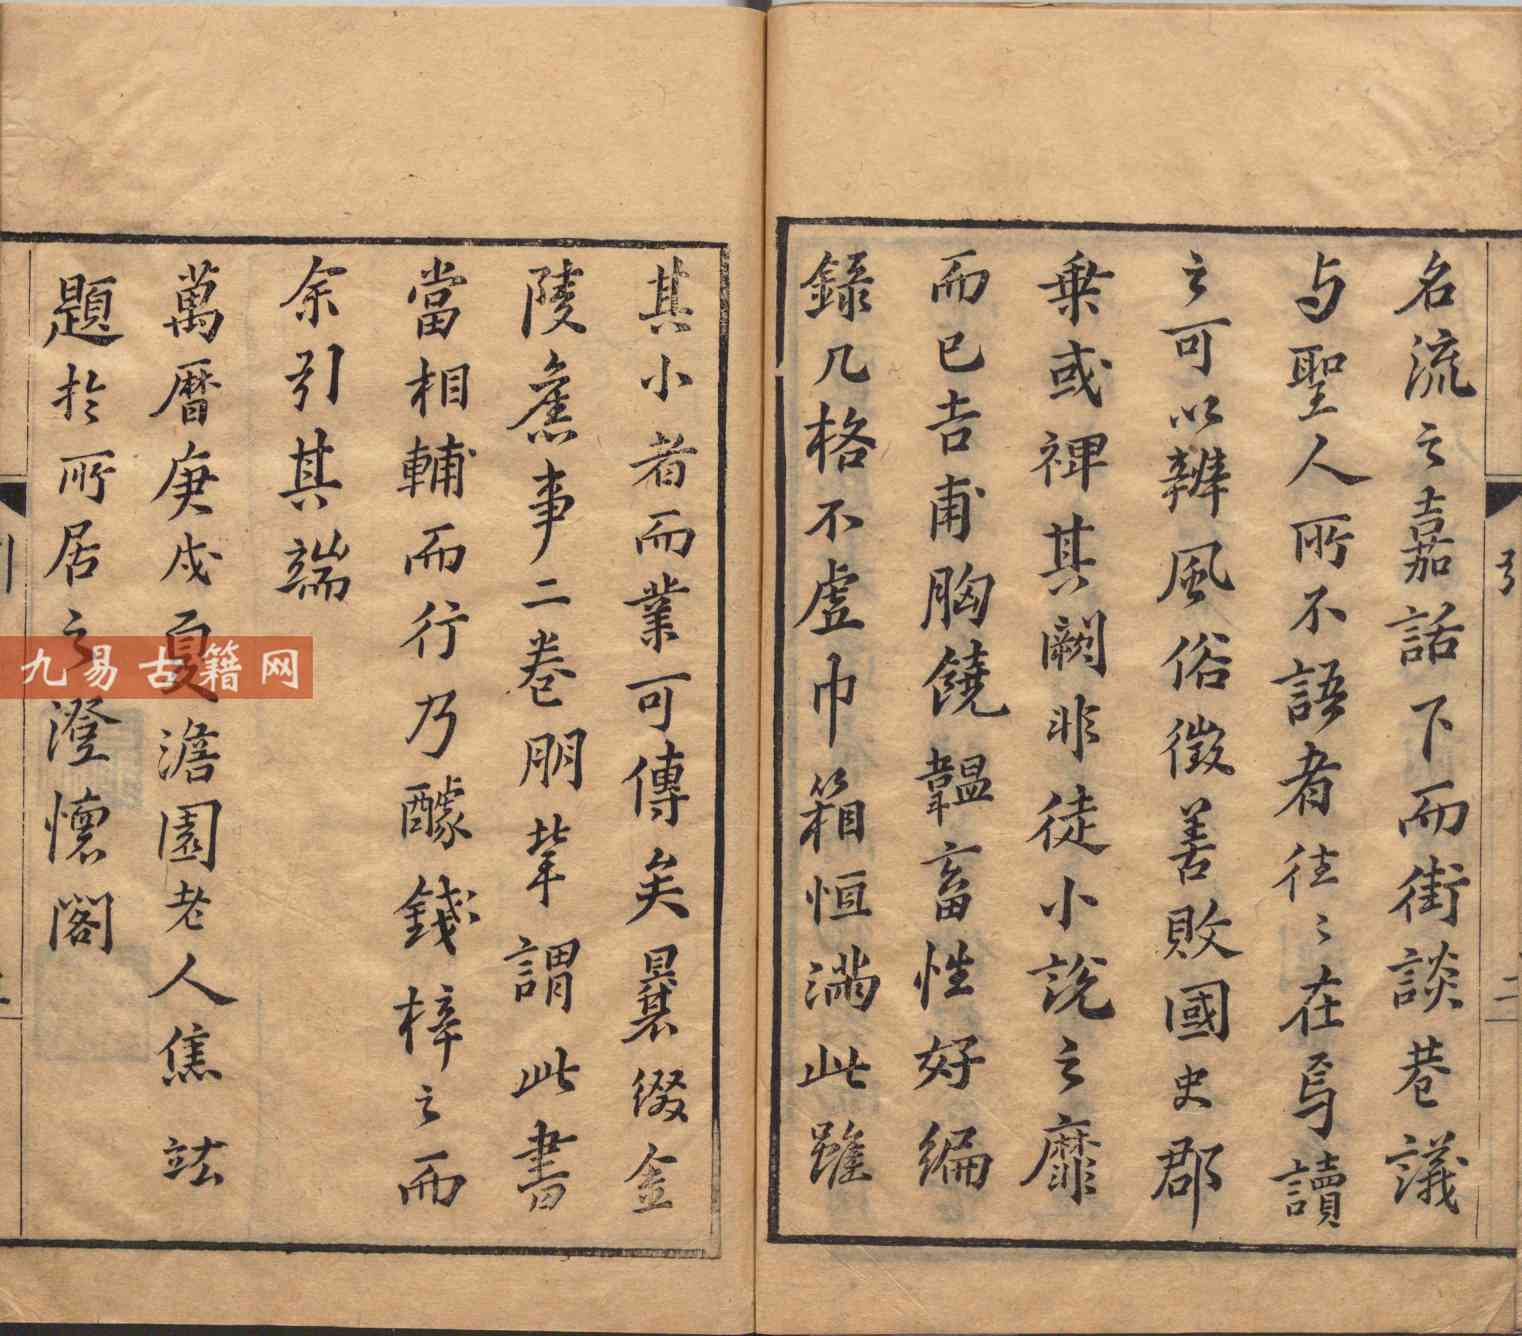 名流之嘉話下而街談巷議
与聖人所不語者往〻在焉讀
之可以辨風俗徵善敗國史郡
乗或裨其闕非徒小說之靡
而已吉甫胸饒韞畜性好編
錄几格不虛巾箱恒满此雖
引
二
其小者而業可傳矣曩綴金
陵舊事二卷朋輩謂此書
當相輔而行乃醵錢梓之而
余引其端
萬曆庚戌夏澹園老人焦竑
題於所居之澄懷閣
九易古籍网